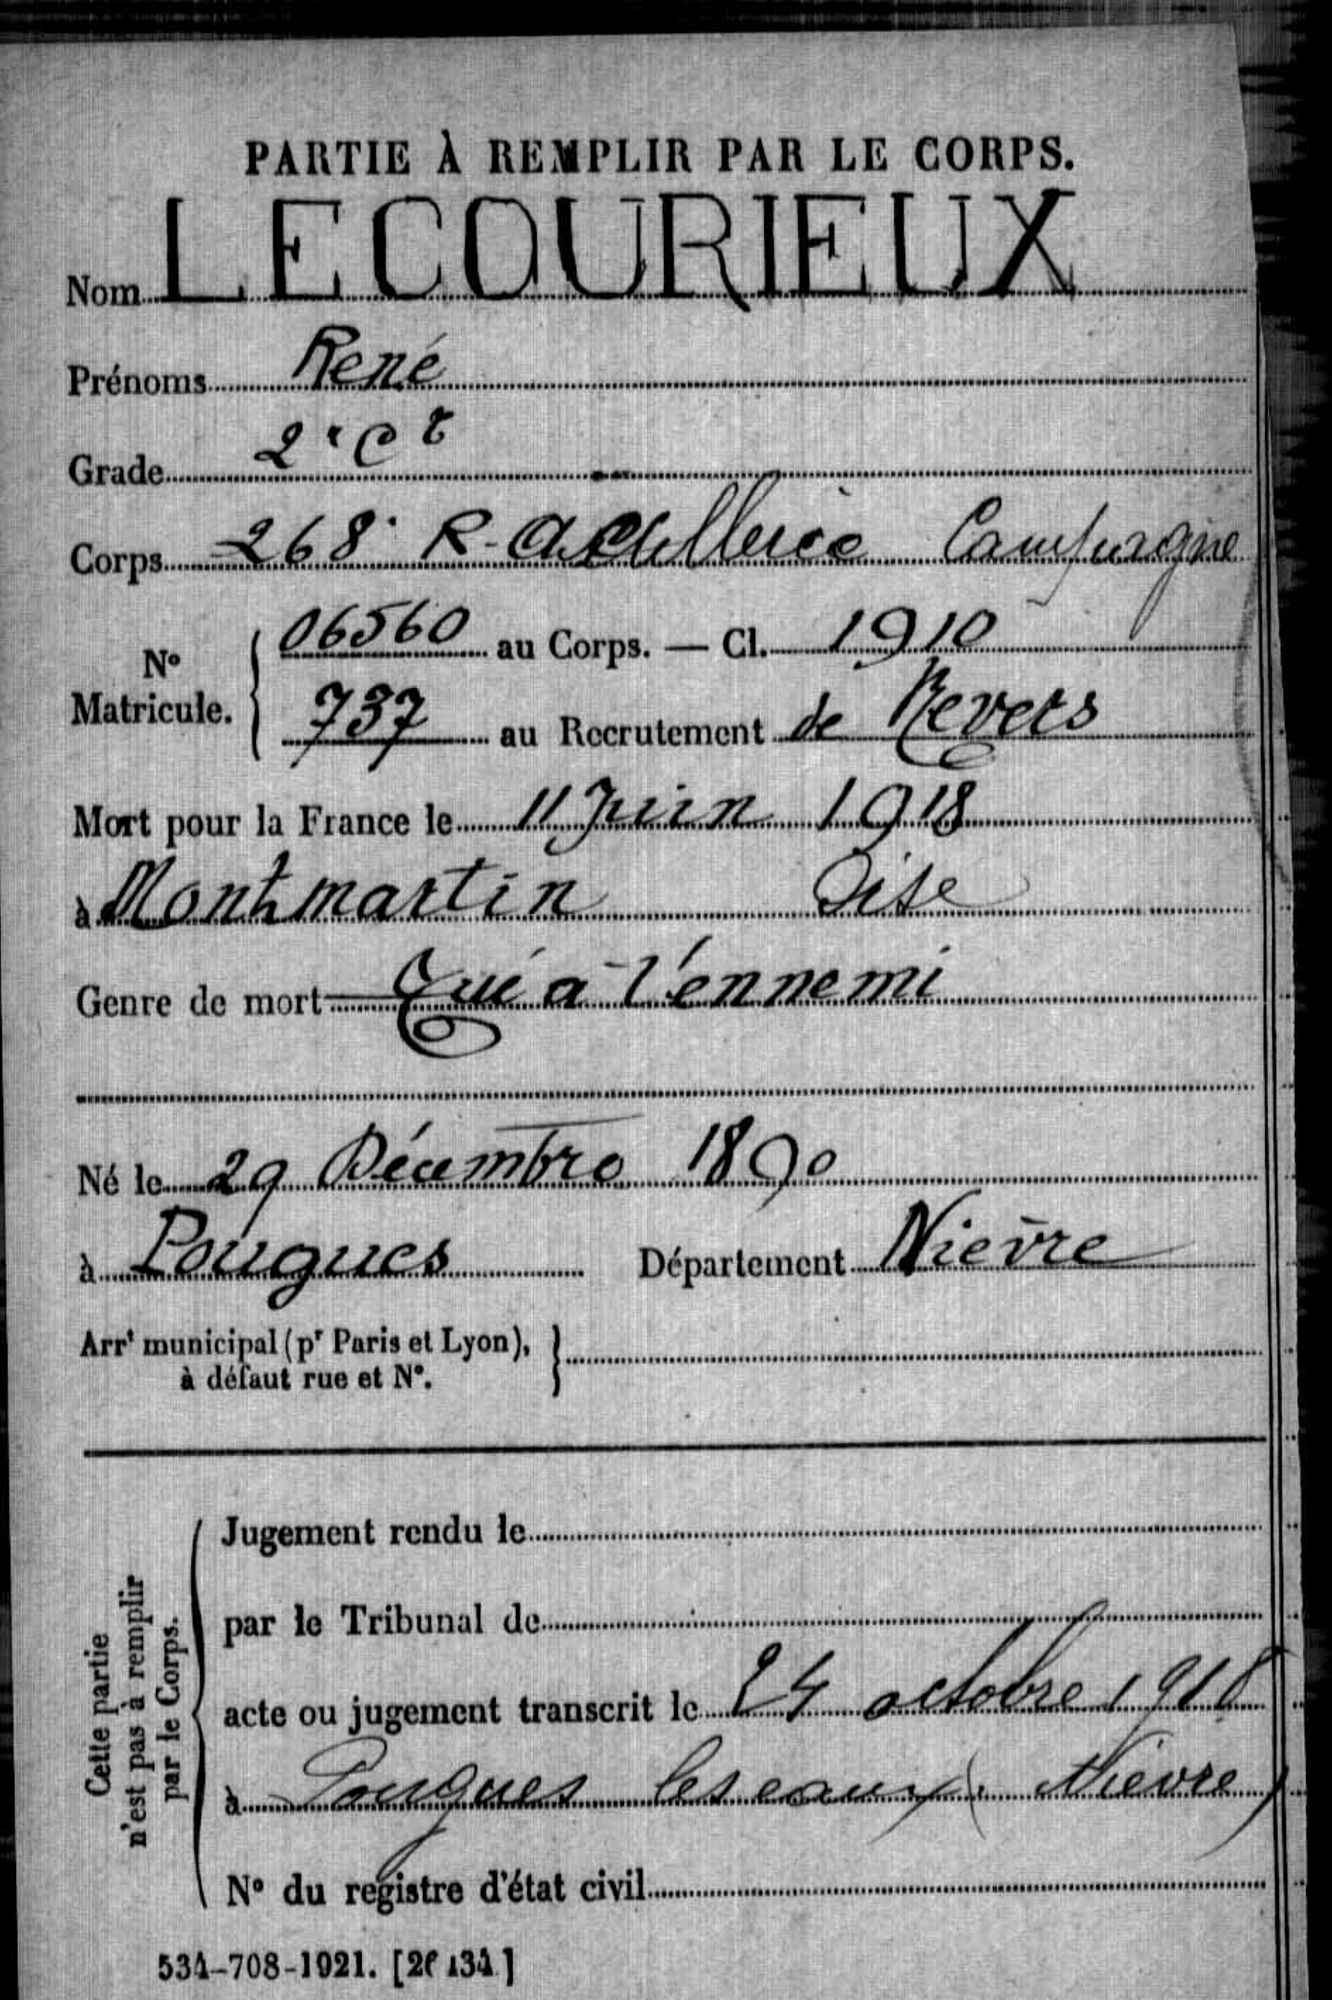 PARTIE À REMPLIR PAR LE CORPS.
Nom LECOURIEUX
Prénoms René
Grade 2e Ct
Corps 268e R. Artillerie Campagne
N° Matricule. 06560 au Corps. — Cl. 1910
737 au Recrutement de Nevers
Mort pour la France le 11 Juin 1918
à Montmartin Oise
Genre de mort Tué à l'ennemi
Né le 29 Décembre 1890
à Pougues Département Nièvre
Arrt municipal (pr Paris et Lyon),
à défaut rue et N°.
Cette partie
n'est pas à remplir
par le Corps.
Jugement rendu le
par le Tribunal de
acte ou jugement transcrit le 24 octobre 1918
à Pougues les eaux (Nièvre)
N° du registre d'état civil
534-708-1921. [26434]